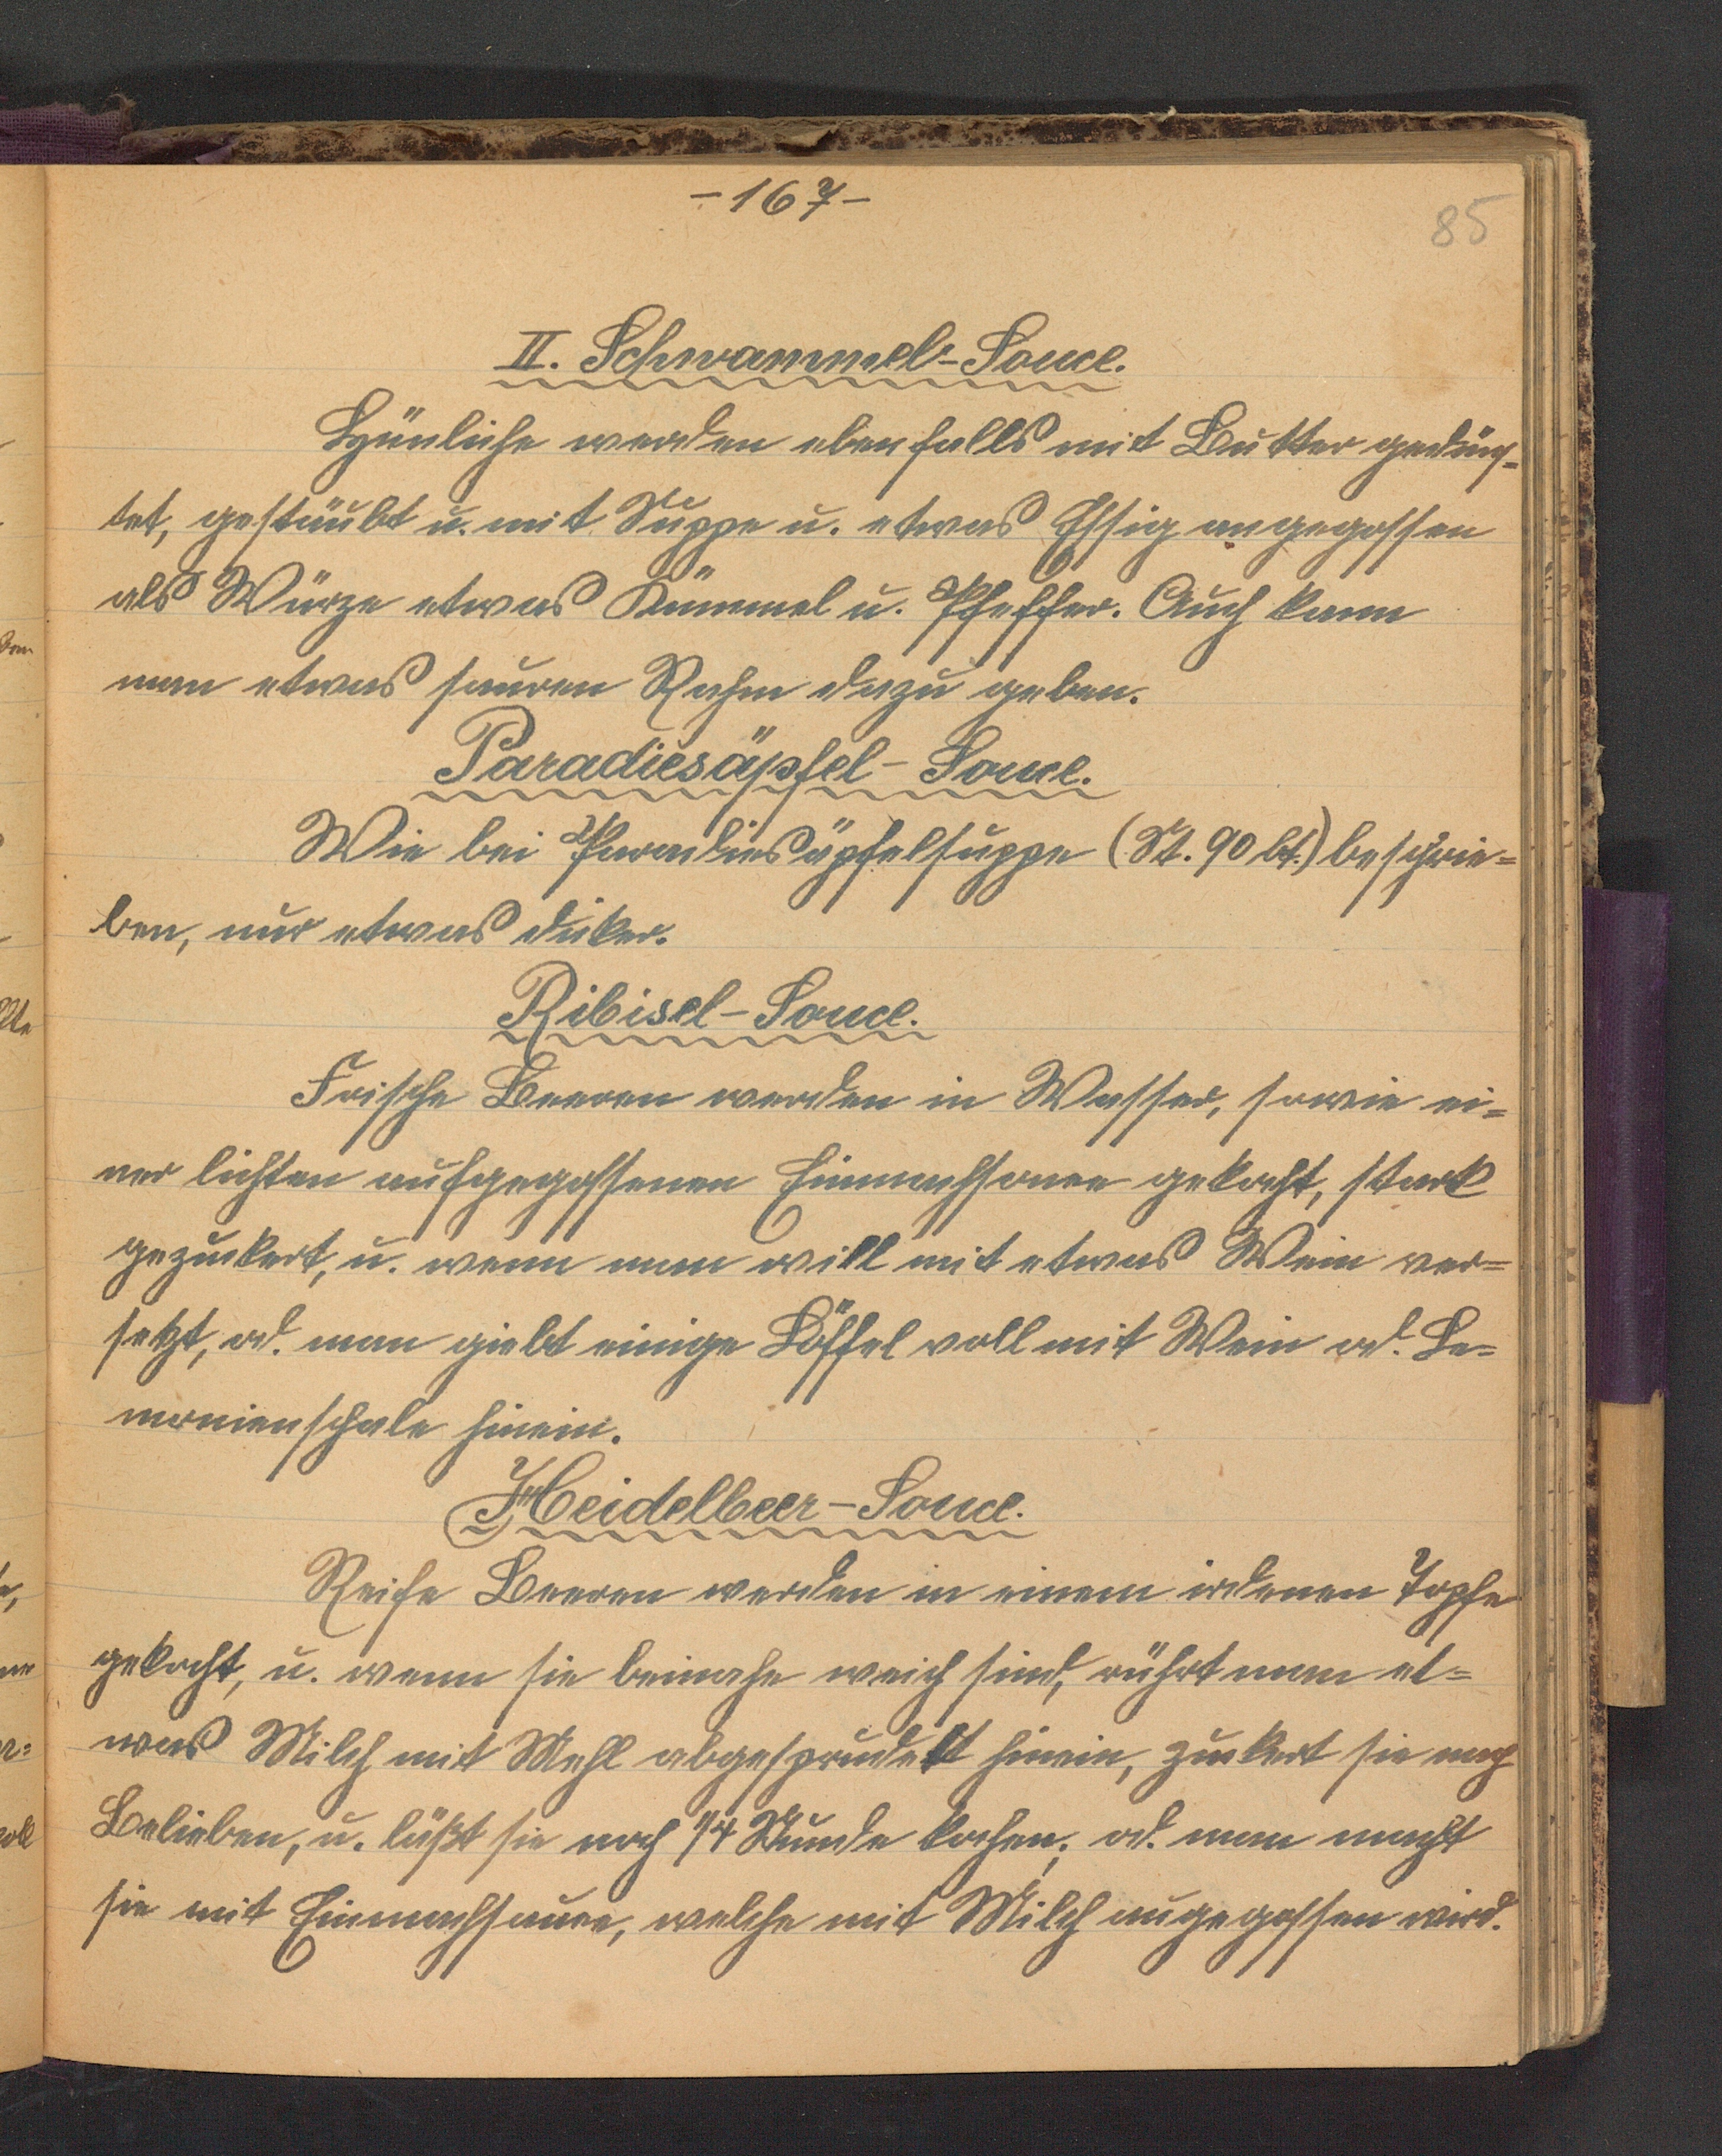 -167-
85
II. Schwammel-Souce.
werden ebenfalls mit Butter gedüns-
tet, gestäubt u. mit Suppe u. etwas Essig angegossen
als Würze etwas Kümmel u. Pfeffer. Auch kann
man etwas sauren Rahm dazu geben.
Paradiesäpfel-Souce.
Wie bei Paradiesäpfelsuppe (St. 90 bt.) beschrie=
ben, nur etwas dicker.
Ribisel-Souce.
Frische Beeren werden in Wasser, sowie ei=
ner lichten aufgegossenen Einmachsouce gekocht, stark
gezuckert, u. wenn man will mit etwas Wein ver=
setzt, od. man giebt einige Löffel voll mit Wein od. Le=
monienschale hinein.
Heidelbeer-Souce.
Reife Beeren werden in einem irdenen Topfe
gekocht, u. wenn sie beinahe weich sind, rührt man et=
was Milch mit Mehl abgesprudelt hinein, zuckert sie nach
Belieben, u. läßt sie noch 1/4 Stunde kochen; od. man macht
sie mit Einmachsauce, welche mit Milch angegossen wird.